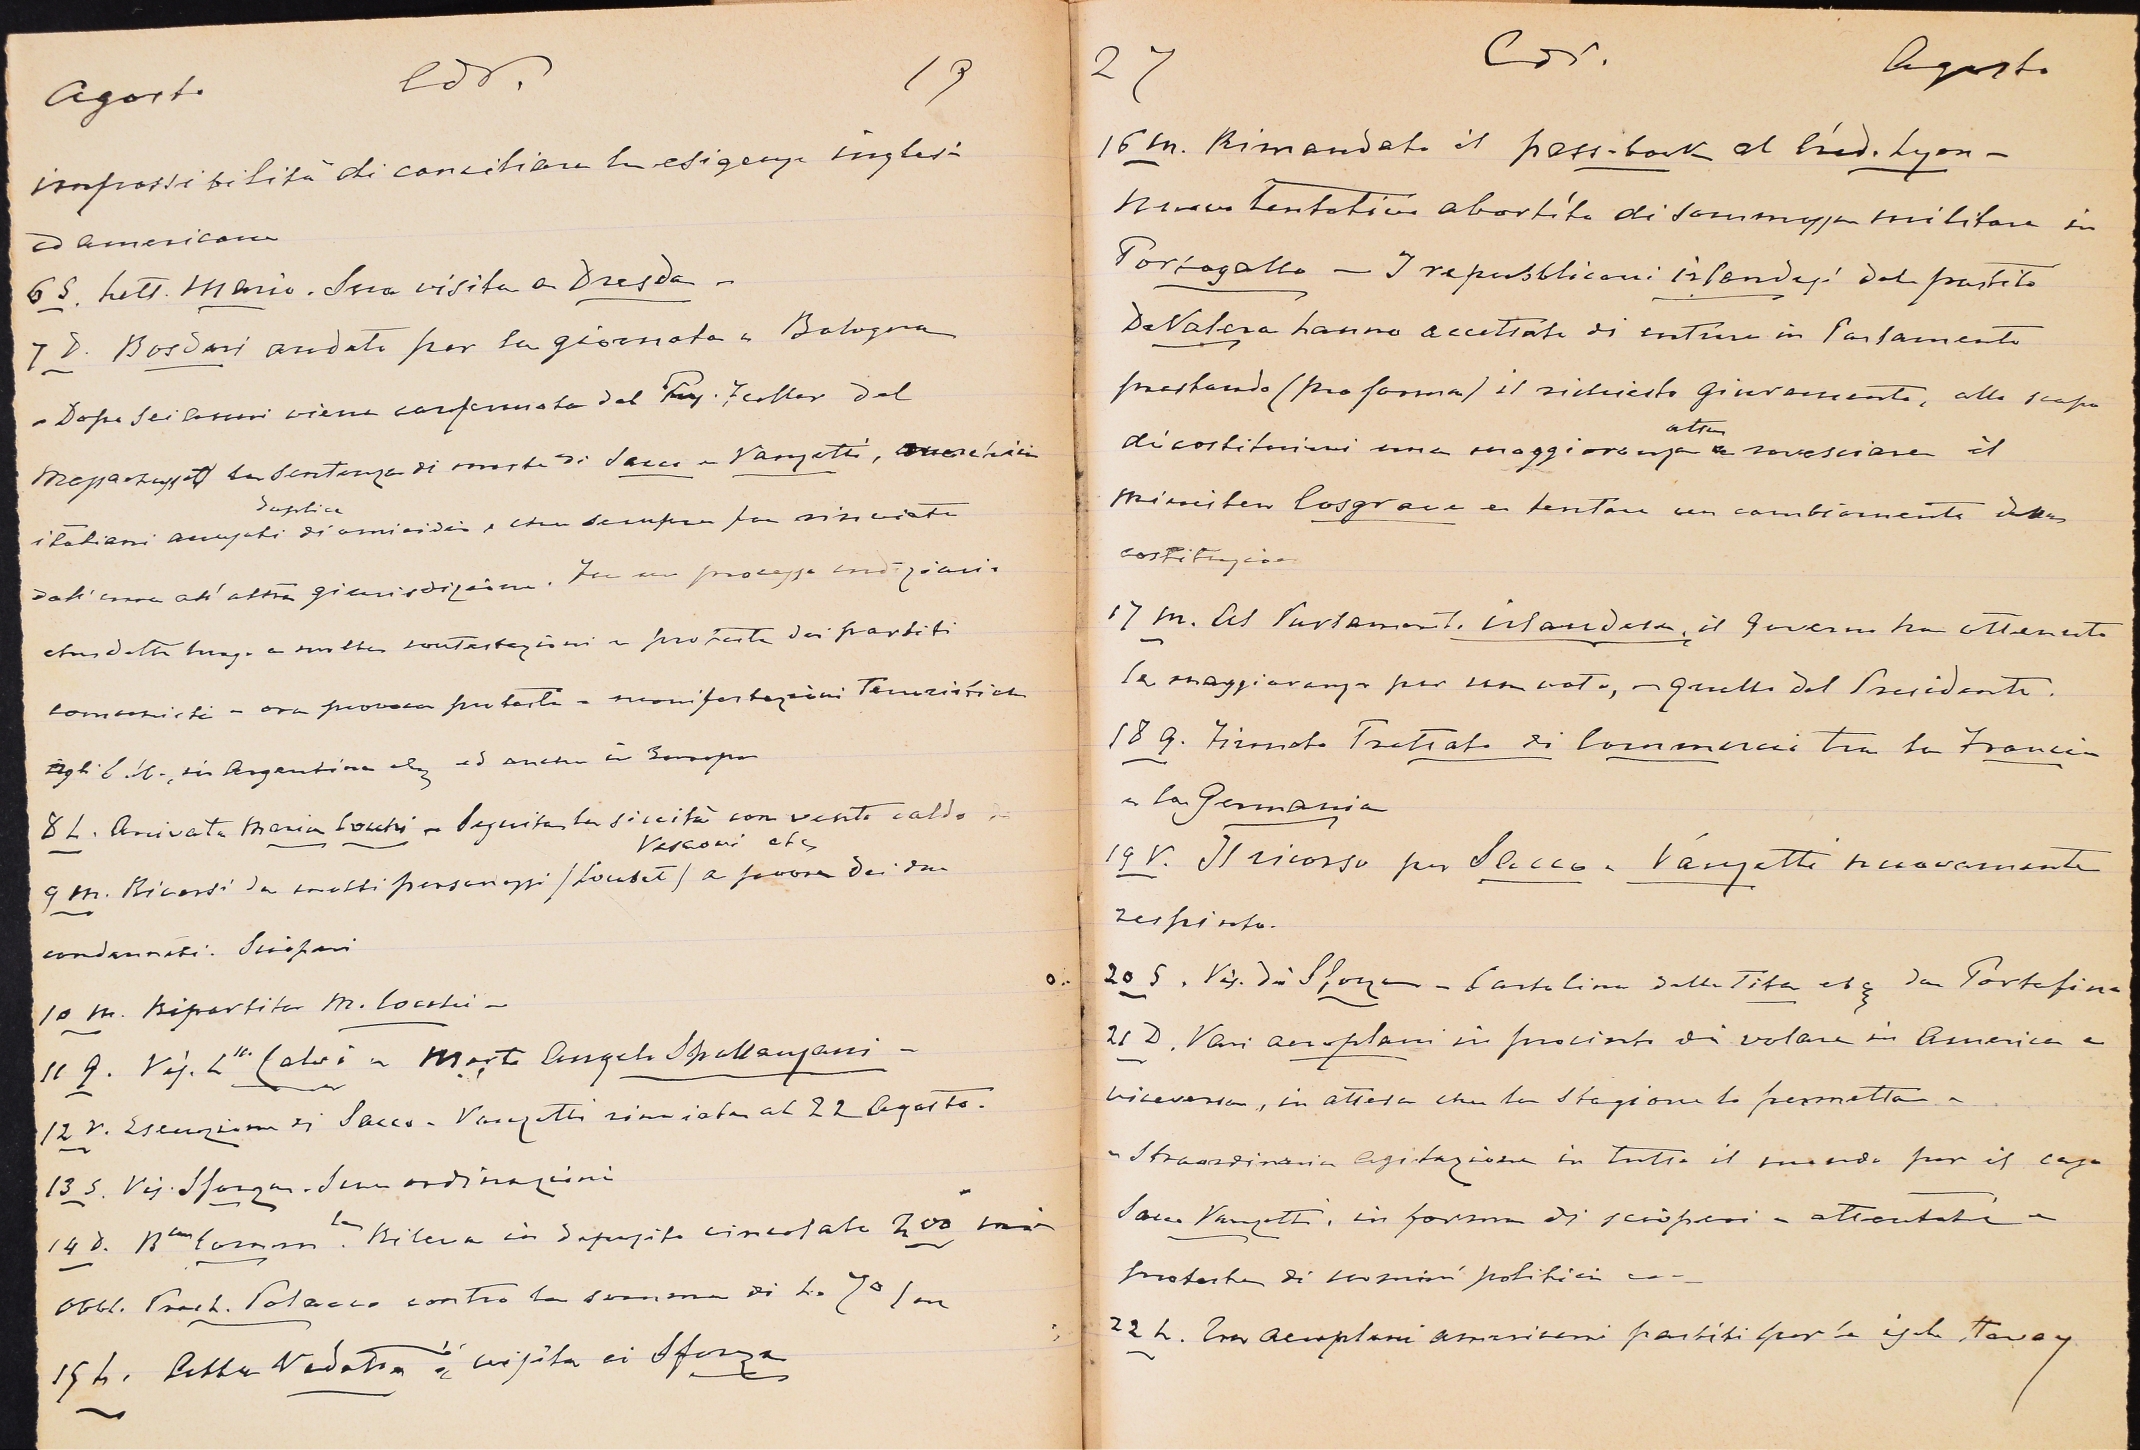 Agosto Cdr. 19
impossibilità di conciliare le esigenze inglesi
ed americane
6 S. Lett. Mario. Sua visita a Dresda -
7 D. Bosdari andato per la giornata a Bologna
- Dopo sei anni viene confermata dal Gov. Fuller del
Massachussett la sentenza di morte di Sacco e Vanzetti, anarchici
duplice
italiani accusati di omicidio, e che sempre fu rinviata
dall'una all'altra giurisdizione. Fu un processo indiziario
che dette luogo a molte contestazioni e proteste dei partiti
comunisti e ora provoca proteste e manifestazioni terroristiche
agli E. U., in Argentina etc ed anche in Europa
8 L. Arrivata Maria Cocchi - Seguita la siccità con vento caldo
Vescovi etc
9 M. Ricorsi da molti personaggi (Loubet) a favore dei due
condannati. Scioperi
10 M. Ripartita M. Cocchi -
11 G. Vis. Calvi - Morto Angelo Spallanzani -
12 V. Esecuzione di Sacco e Vanzetti rinviata al 22 Agosto.
13 S. Vis. Sforza. Sue ordinazioni
14 D. Bca Comm.le Rileva in deposito vincolato 200 mie
Obbl. Prest. Polacco contro la somma di L. 70
15 L. Alla Vedetta visita ai Sforza
27 Cdr. Agosto
16 M. Rimandato il pass-book al Créd. Lyon -
Nuovo tentativo abortito di sommossa militare in
Portogallo - I repubblicani irlandesi del partito
De Valera hanno accettato di entrare in Parlamento
prestando (pro forma) il richiesto giuramento, allo scopo
atta
di costituirvi una maggioranza a rovesciare il
ministero Cosgrave e tentare un cambiamento della
costituzione
17 M. Al Parlament. irlandese, il Governo ha ottenuto
la maggioranza per un voto, - quello del Presidente.
18 G. Firmato Trattato di Commercio tra la Francia
e la Germania
19 V. Il ricorso per Sacco e Vanzetti nuovamente
respinto.
20 S. Vis. di Sforza - Cartolina della Tita etc da Portofino
21 D. Vari aeroplani in procinto di volare in America e
viceversa, in attesa che la stagione lo permetta -
- Straordinaria agitazione in tutto il mondo per il caso
Sacco Vanzetti, in forma di scioperi e attentati e
proteste di uomini politici
22 L. aeroplani americani partiti per le isole Haway